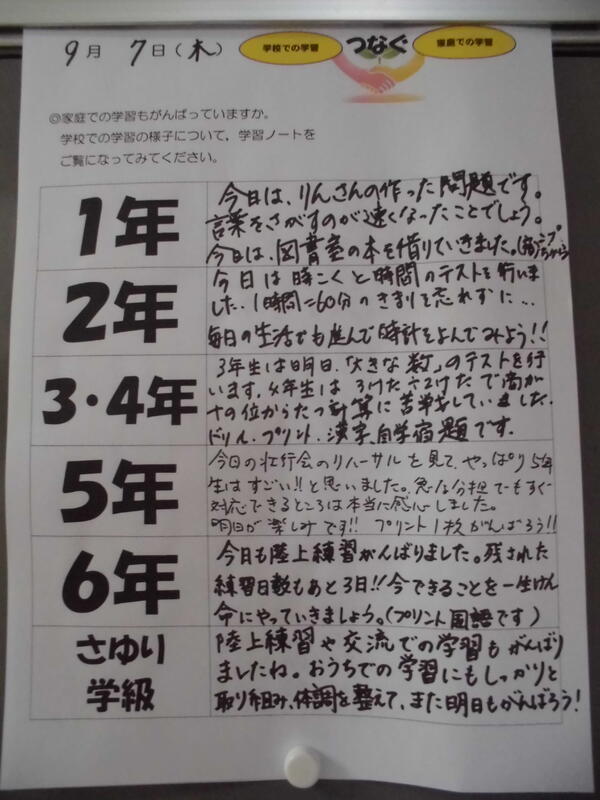 9月 7日(木)
学校での学習 つなぐ 家庭での学習
◎家庭での学習もがんばっていますか。
学校での学習の様子について、学習ノートを
ご覧になってみてください。
1年
今日は、りんさんの作った問題です。
言葉をさがすのが速くなったことでしょう。
今日は、図書室の本を借りていきました。
2年
今日は時こくと時間のテストを行いま
した。1時間=60分のきまりを忘れずに…
毎日の生活でも進んで時計をよんでみよう!!
3・4年
3年生は明日、「大きな数」のテストを行
います。4年生は3けた÷2けたで商が
十の位からたつ計算に苦戦していました。
ドリル、プリント、漢字、自学宿題です。
5年
今日の壮行会のリハーサルを見て、やっぱり5年
生はすごい!!と思いました。急な分担でもすぐ
対応できるところは本当に感心しました。
明日が楽しみです!! プリント1枚がんばろう!!
6年
今日も陸上練習がんばりました。残された
練習日数もあと3日!!今できることを一生けん
命にやっていきましょう。(プリント国語です)
さゆり
学級
陸上練習や交流での学習もがんばり
ましたね。おうちでの学習にもしっかりと
取り組み、体調を整えて、また明日もがんばろう!